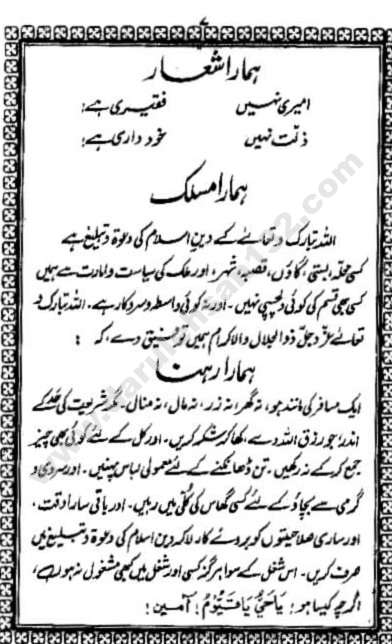 ۷
ہمارا شعار
امیری نہیں فقیری ہے!
ذلت نہیں خودداری ہے!
ہمارا مسلک
اللہ تبارک و تعالےٰ کے دینِ اسلام کی دعوۃ و تبلیغ ہے
کسی محلہ، بستی، گاؤں، قصبہ، شہر، اور ملک کی سیاست و امارت سے ہمیں
کسی بھی قسم کی کوئی دلچسپی نہیں۔ اور نہ کوئی واسطہ و سروکار ہے۔ اللہ تبارک و
تعالےٰ عزّوجلّ ذوالجلال والاکرام ہمیں توفیق دے، کہ :
ہمارا رہنا
ایک مسافر کی مانند ہو، نہ گھر، نہ زر، نہ مال، نہ منال۔ مگر شریعت کی حد کے
اندر؛ جو رزق اللہ دے، کھا کر شکر کریں۔ اور کل کے لئے کوئی بھی چیز
جمع کر کے نہ رکھیں۔ تن ڈھانکنے کے لئے معمولی لباس پہنیں۔ اور سردی و
گرمی سے بچاؤ کے لئے کسی گھاس کی کُلّی میں رہیں۔ اور باقی سارا وقت،
اور ساری صلاحیتوں کو بروئے کار لا کر دینِ اسلام کی دعوۃ و تبلیغ میں
صرف کریں۔ اس شغل کے سوا ہرگز کسی اور شغل میں کبھی مشغول نہ ہوں،
اگرچہ کیسا ہو؛ یَاحَیُّ یَاقَیُّوْمُ؛ آمین!